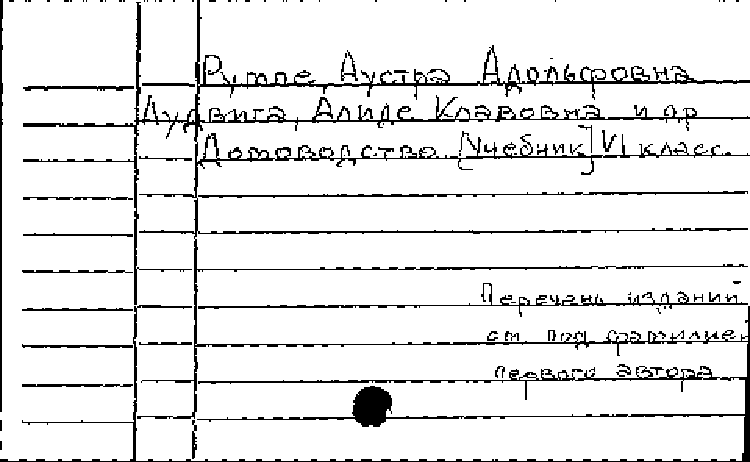 Румпе, Аустра Адольфовна
Лудвига, Алиде Клавовна и др
Домоводство [Учебник] VI класс.
Перечень изданий
см. под фамилией
первого автора